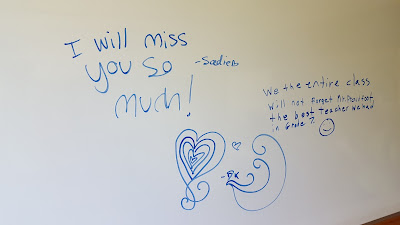 I will miss
you so
much!
We the entire class
will not forget
the best teacher we had
in Grade 7.